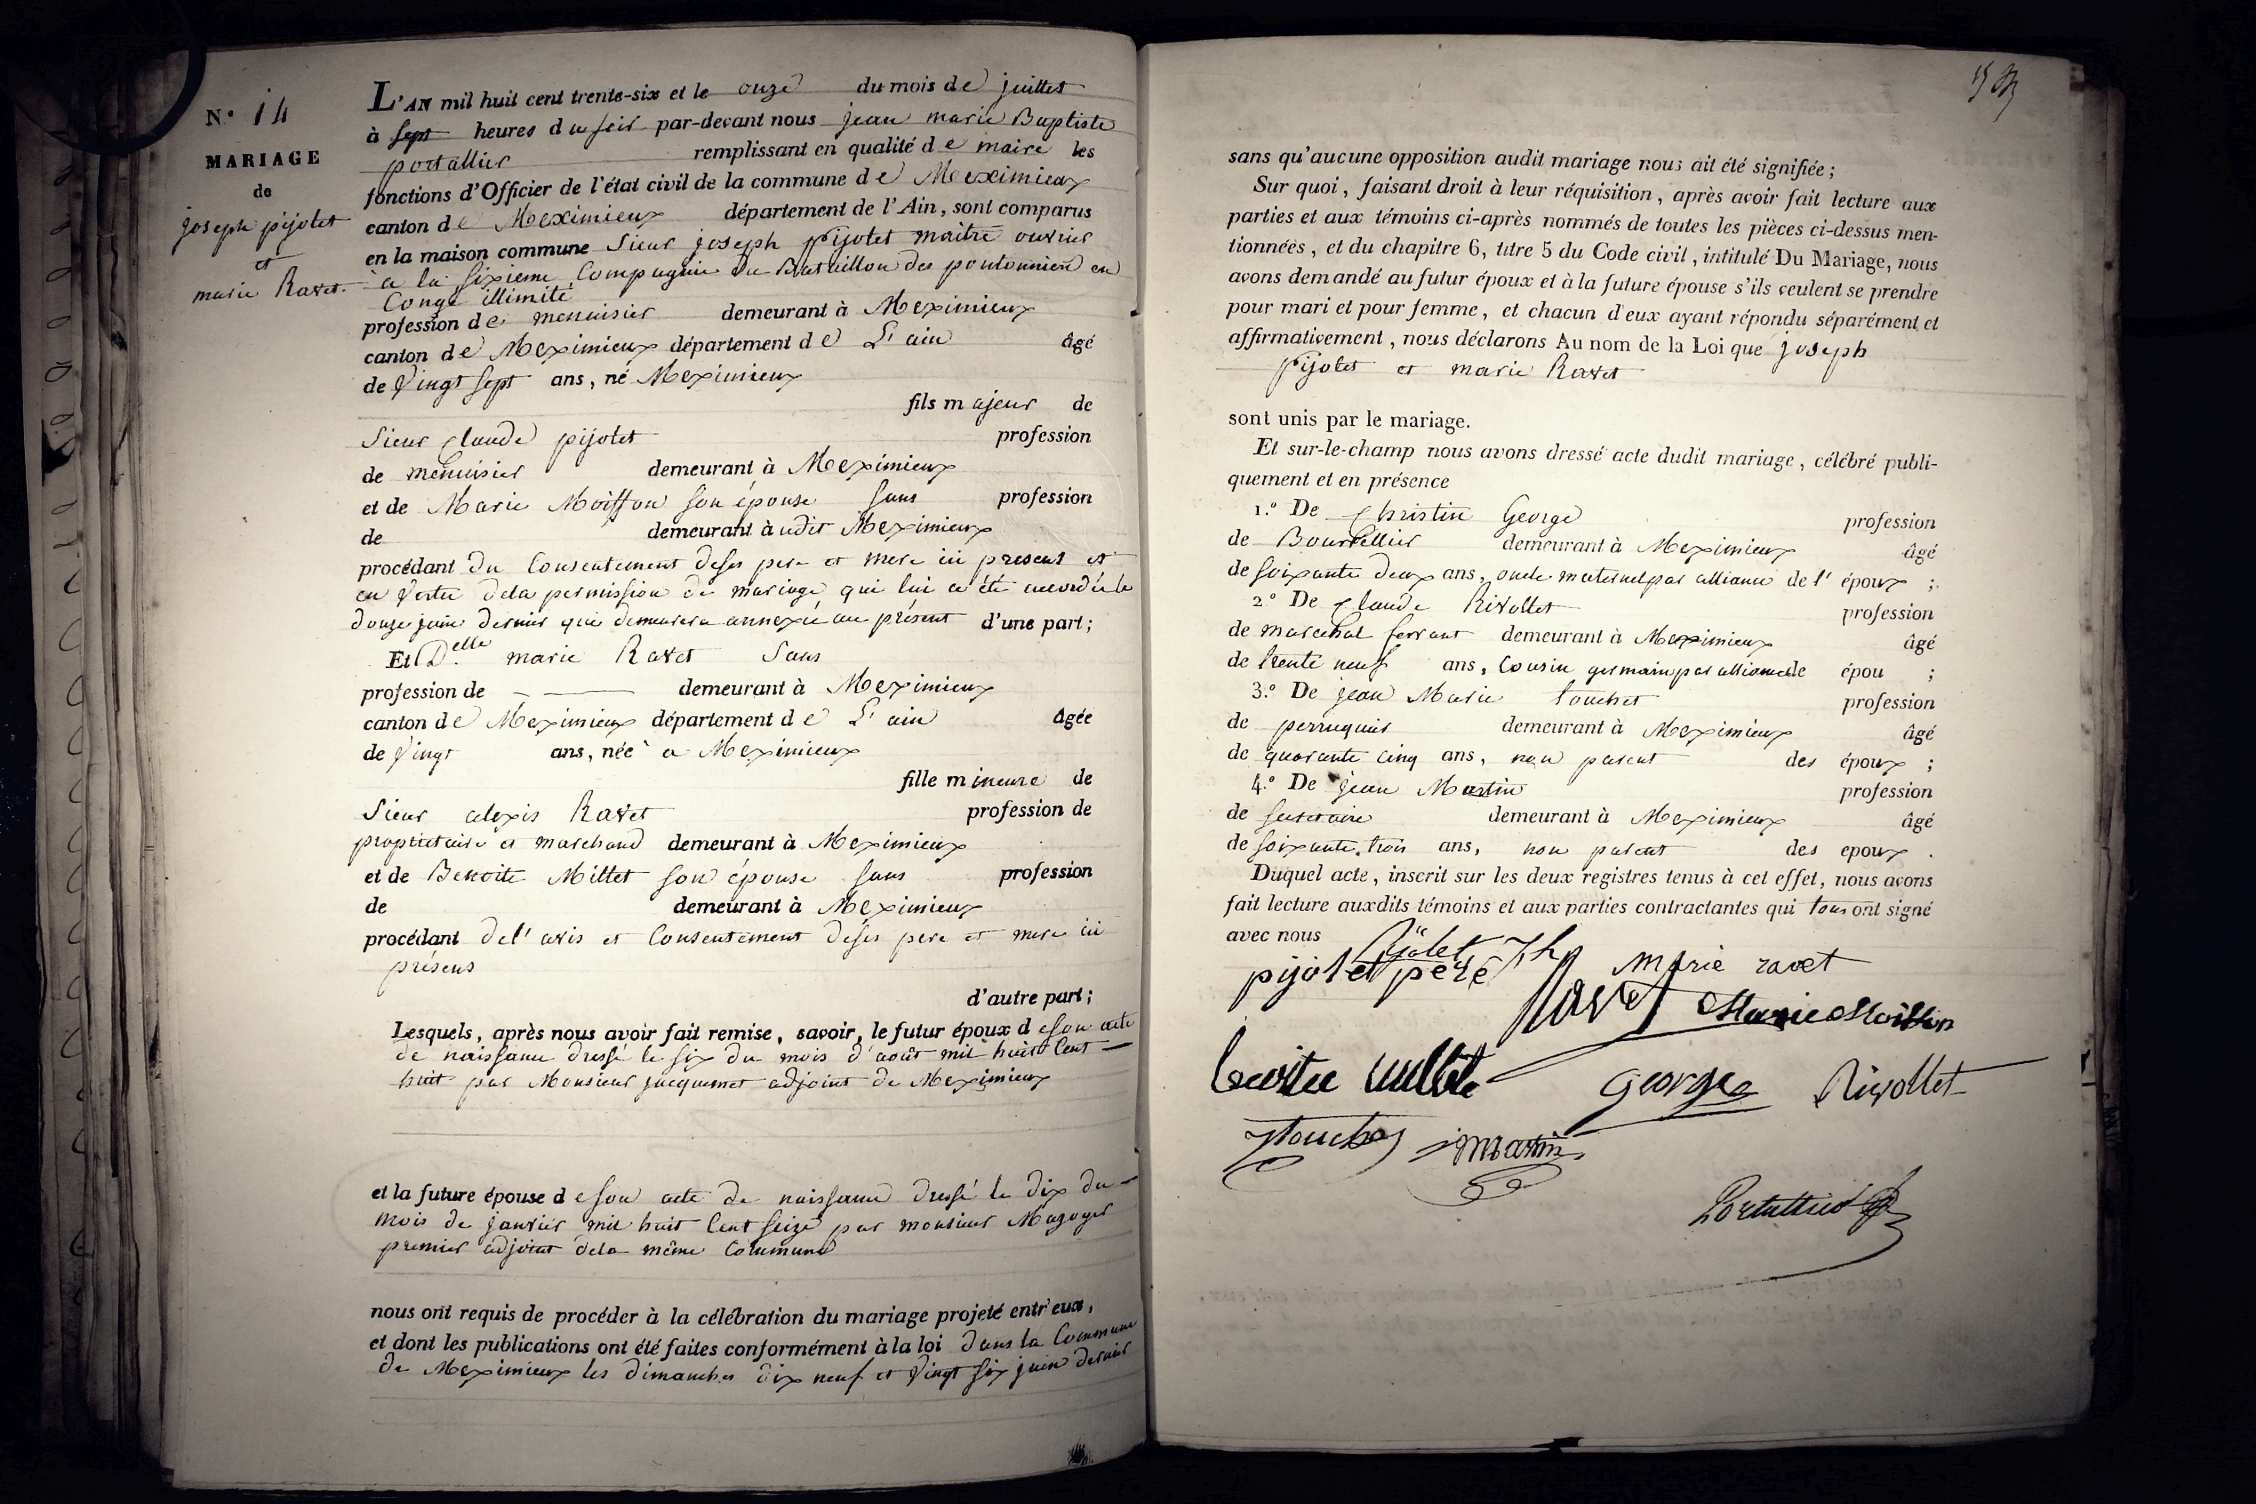 N.º 14
MARIAGE
de
joseph pijolet
et
marie Ravet.
L'AN mil huit cent trente-six et le onze du mois de juillet
à sept heures du soir par-devant nous jean marie Baptiste
portallier remplissant en qualité de maire les
fonctions d'Officier de l'état civil de la commune de Meximieux
canton de Meximieux département de l'Ain, sont comparus
en la maison commune Sieur joseph pijolet maitre ouvrier
à la sixieme Compagnie du Bataillon des pontonniers en
Congé illimité
profession de menuisier demeurant à Meximieux
canton de Meximieux département de L'ain âgé
de Vingt sept ans, né Meximieux
fils majeur de
Sieur Claude pijolet profession
de menuisier demeurant à Meximieux
et de Marie Moiffon son épouse sans profession
de demeurant audit Meximieux
procédant du Consentement deses pere et mere ici present et
en Vertu dela permission de mariage qui lui a été accordée le
douze juin dernier qui demeurera annexée au présent d'une part;
Et D.elle marie Ravet Sans
profession de demeurant à Meximieux
canton de Meximieux département de L'ain âgée
de Vingt ans, née a Meximieux
fille mineure de
Sieur alexis Ravet profession de
propriétaire et marchand demeurant à Meximieux
et de Benoite Millet son épouse sans profession
de demeurant à Meximieux
procédant del'avis et Consentement deses pere et mere ici
présens
d'autre part;
Lesquels, après nous avoir fait remise, savoir, le futur époux de son acte
de naissance dressé le six du mois d'août mil huit Cent
huit par Monsieur jacquemet adjoint de Meximieux
et la future épouse de son acte de naissance dressé le dix du
mois de janvier mil huit Cent Seize par monsieur Magoyer
premier adjoint dela même Commune
nous ont requis de procéder à la célébration du mariage projeté entr'eux,
et dont les publications ont été faites conformément à la loi dans la Commune
de Meximieux les dimanches dix neuf et Vingt six juin dernier
sans qu'aucune opposition audit mariage nous ait été signifiée;
Sur quoi, faisant droit à leur réquisition, après avoir fait lecture aux
parties et aux témoins ci-après nommés de toutes les pièces ci-dessus men-
tionnées, et du chapitre 6, titre 5 du Code civil, intitulé Du Mariage, nous
avons demandé au futur époux et à la future épouse s'ils veulent se prendre
pour mari et pour femme, et chacun d'eux ayant répondu séparément et
affirmativement, nous déclarons Au nom de la Loi que joseph
Pijolet et marie Ravet
sont unis par le mariage.
Et sur-le-champ nous avons dressé acte dudit mariage, célébré publi-
quement et en présence
1.º De Christin George profession
de Bourrellier demeurant à Meximieux âgé
de soixante deux ans, oncle maternel par alliance de l'époux;
2.º De Claude Rivollet profession
de marechal ferrant demeurant à Meximieux âgé
de trente neuf ans, Cousin germain par alliance de épou ;
3.º De jean Marie touchet profession
de perruquier demeurant à Meximieux âgé
de quarante cinq ans, non parent des époux;
4.º De jean Martin profession
de secretaire demeurant à Meximieux âgé
de soixante trois ans, non parent des epoux.
Duquel acte, inscrit sur les deux registres tenus à cet effet, nous avons
fait lecture auxdits témoins et aux parties contractantes qui tous ont signé
avec nous
pijolet Jh
pijolet pere marie ravet
Ravet Marie Moiffon
benoite millet george Rivollet
touchet martin
Portallier